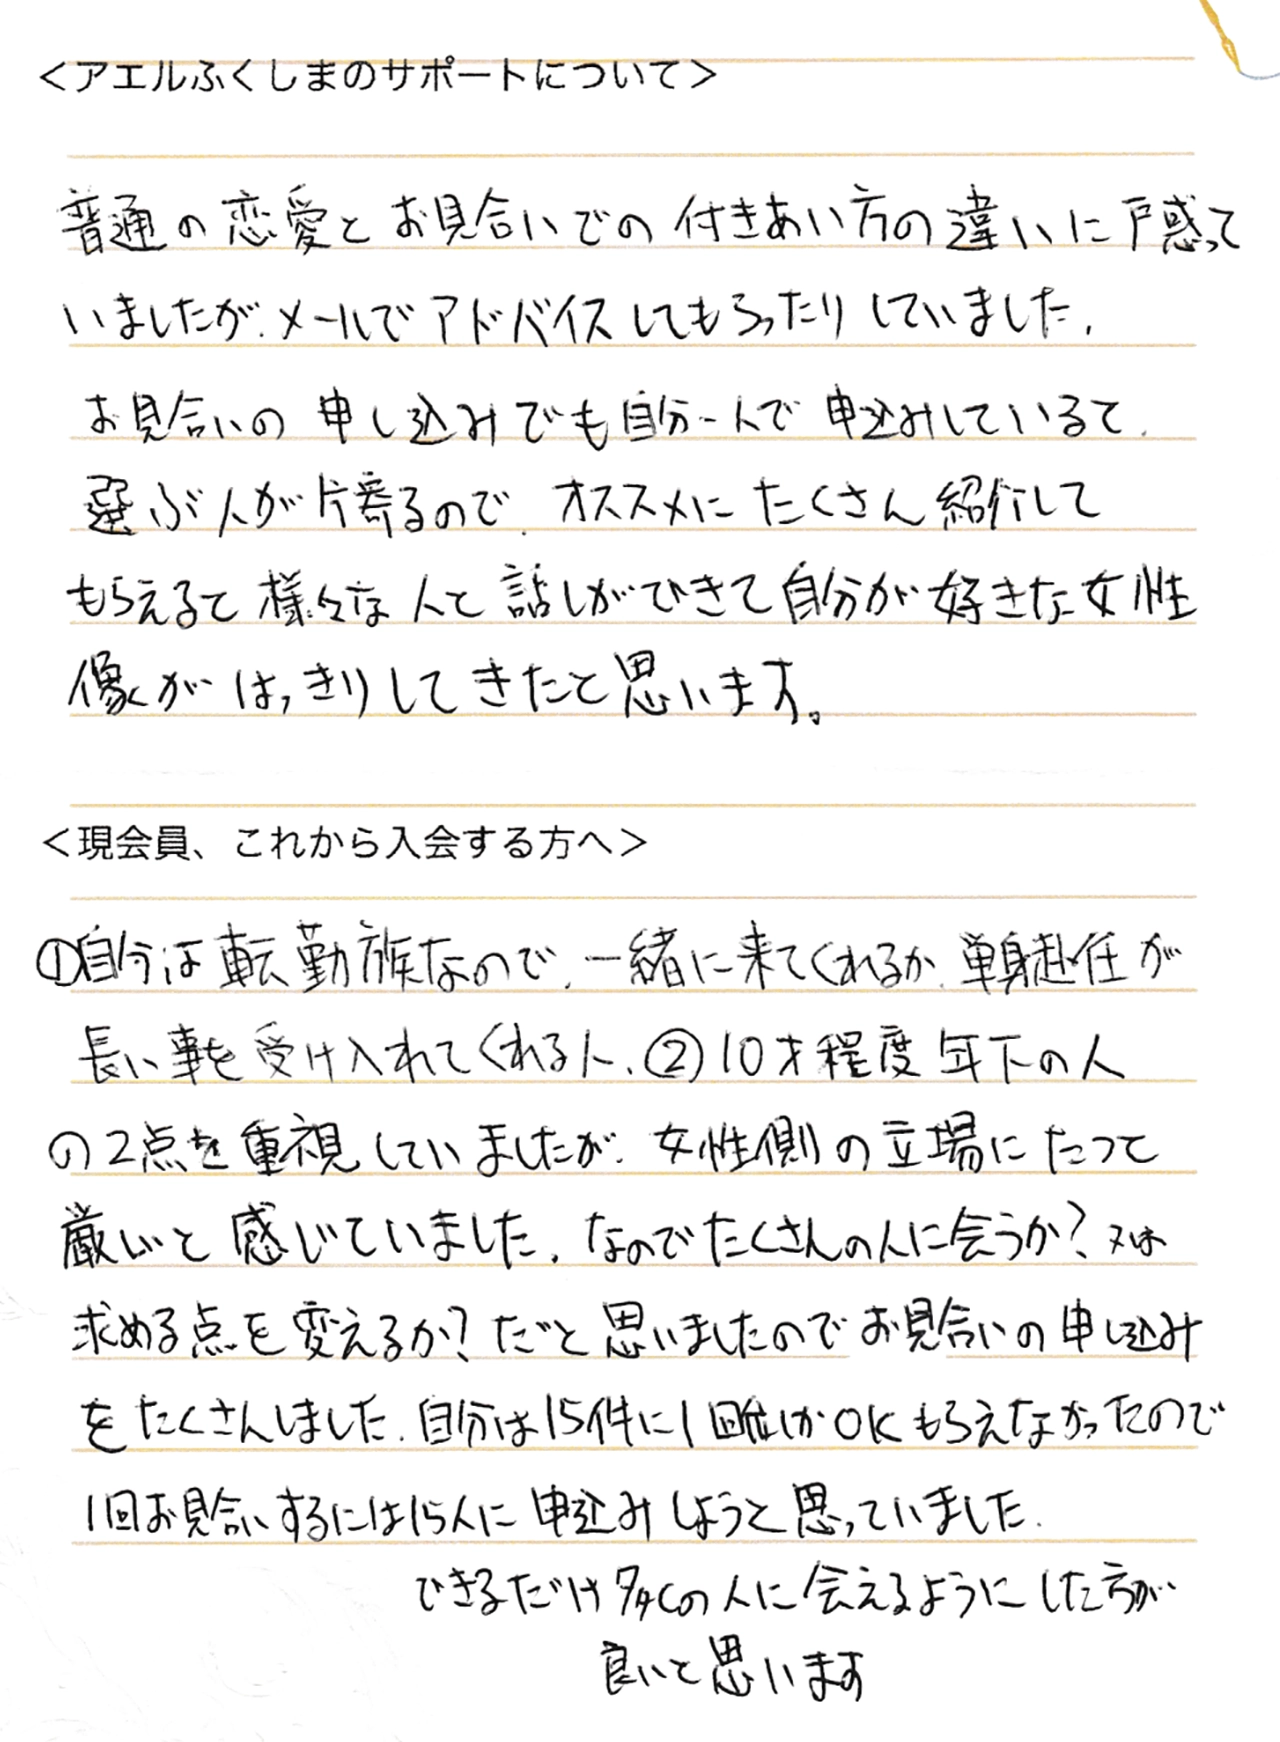 ＜アエルふくしまのサポートについて＞
普通の恋愛とお見合いでの付きあい方の違いに戸惑って
いましたが、メールでアドバイスしてもらったりしていました。
お見合いの申し込みでも自分一人で申込みしていると、
選ぶ人が片寄るので、オススメにたくさん紹介して
もらえると様々な人と話しができて自分が好きな女性
像がはっきりしてきたと思います。
＜現会員、これから入会する方へ＞
①自分は転勤族なので、一緒に来てくれるか、単身赴任が
長い事を受け入れてくれる人、②10才程度年下の人
の2点を重視していましたが、女性側の立場にたつて
厳しいと感じていました。なのでたくさんの人に会うか？又は
求める点を変えるか？だと思いましたのでお見合いの申し込み
をたくさんしました。自分は15件に1回しかOKもらえなかったので
1回お見合いするには15人に申込みしようと思っていました。
できるだけ多くの人に会えるようにした方が
良いと思います